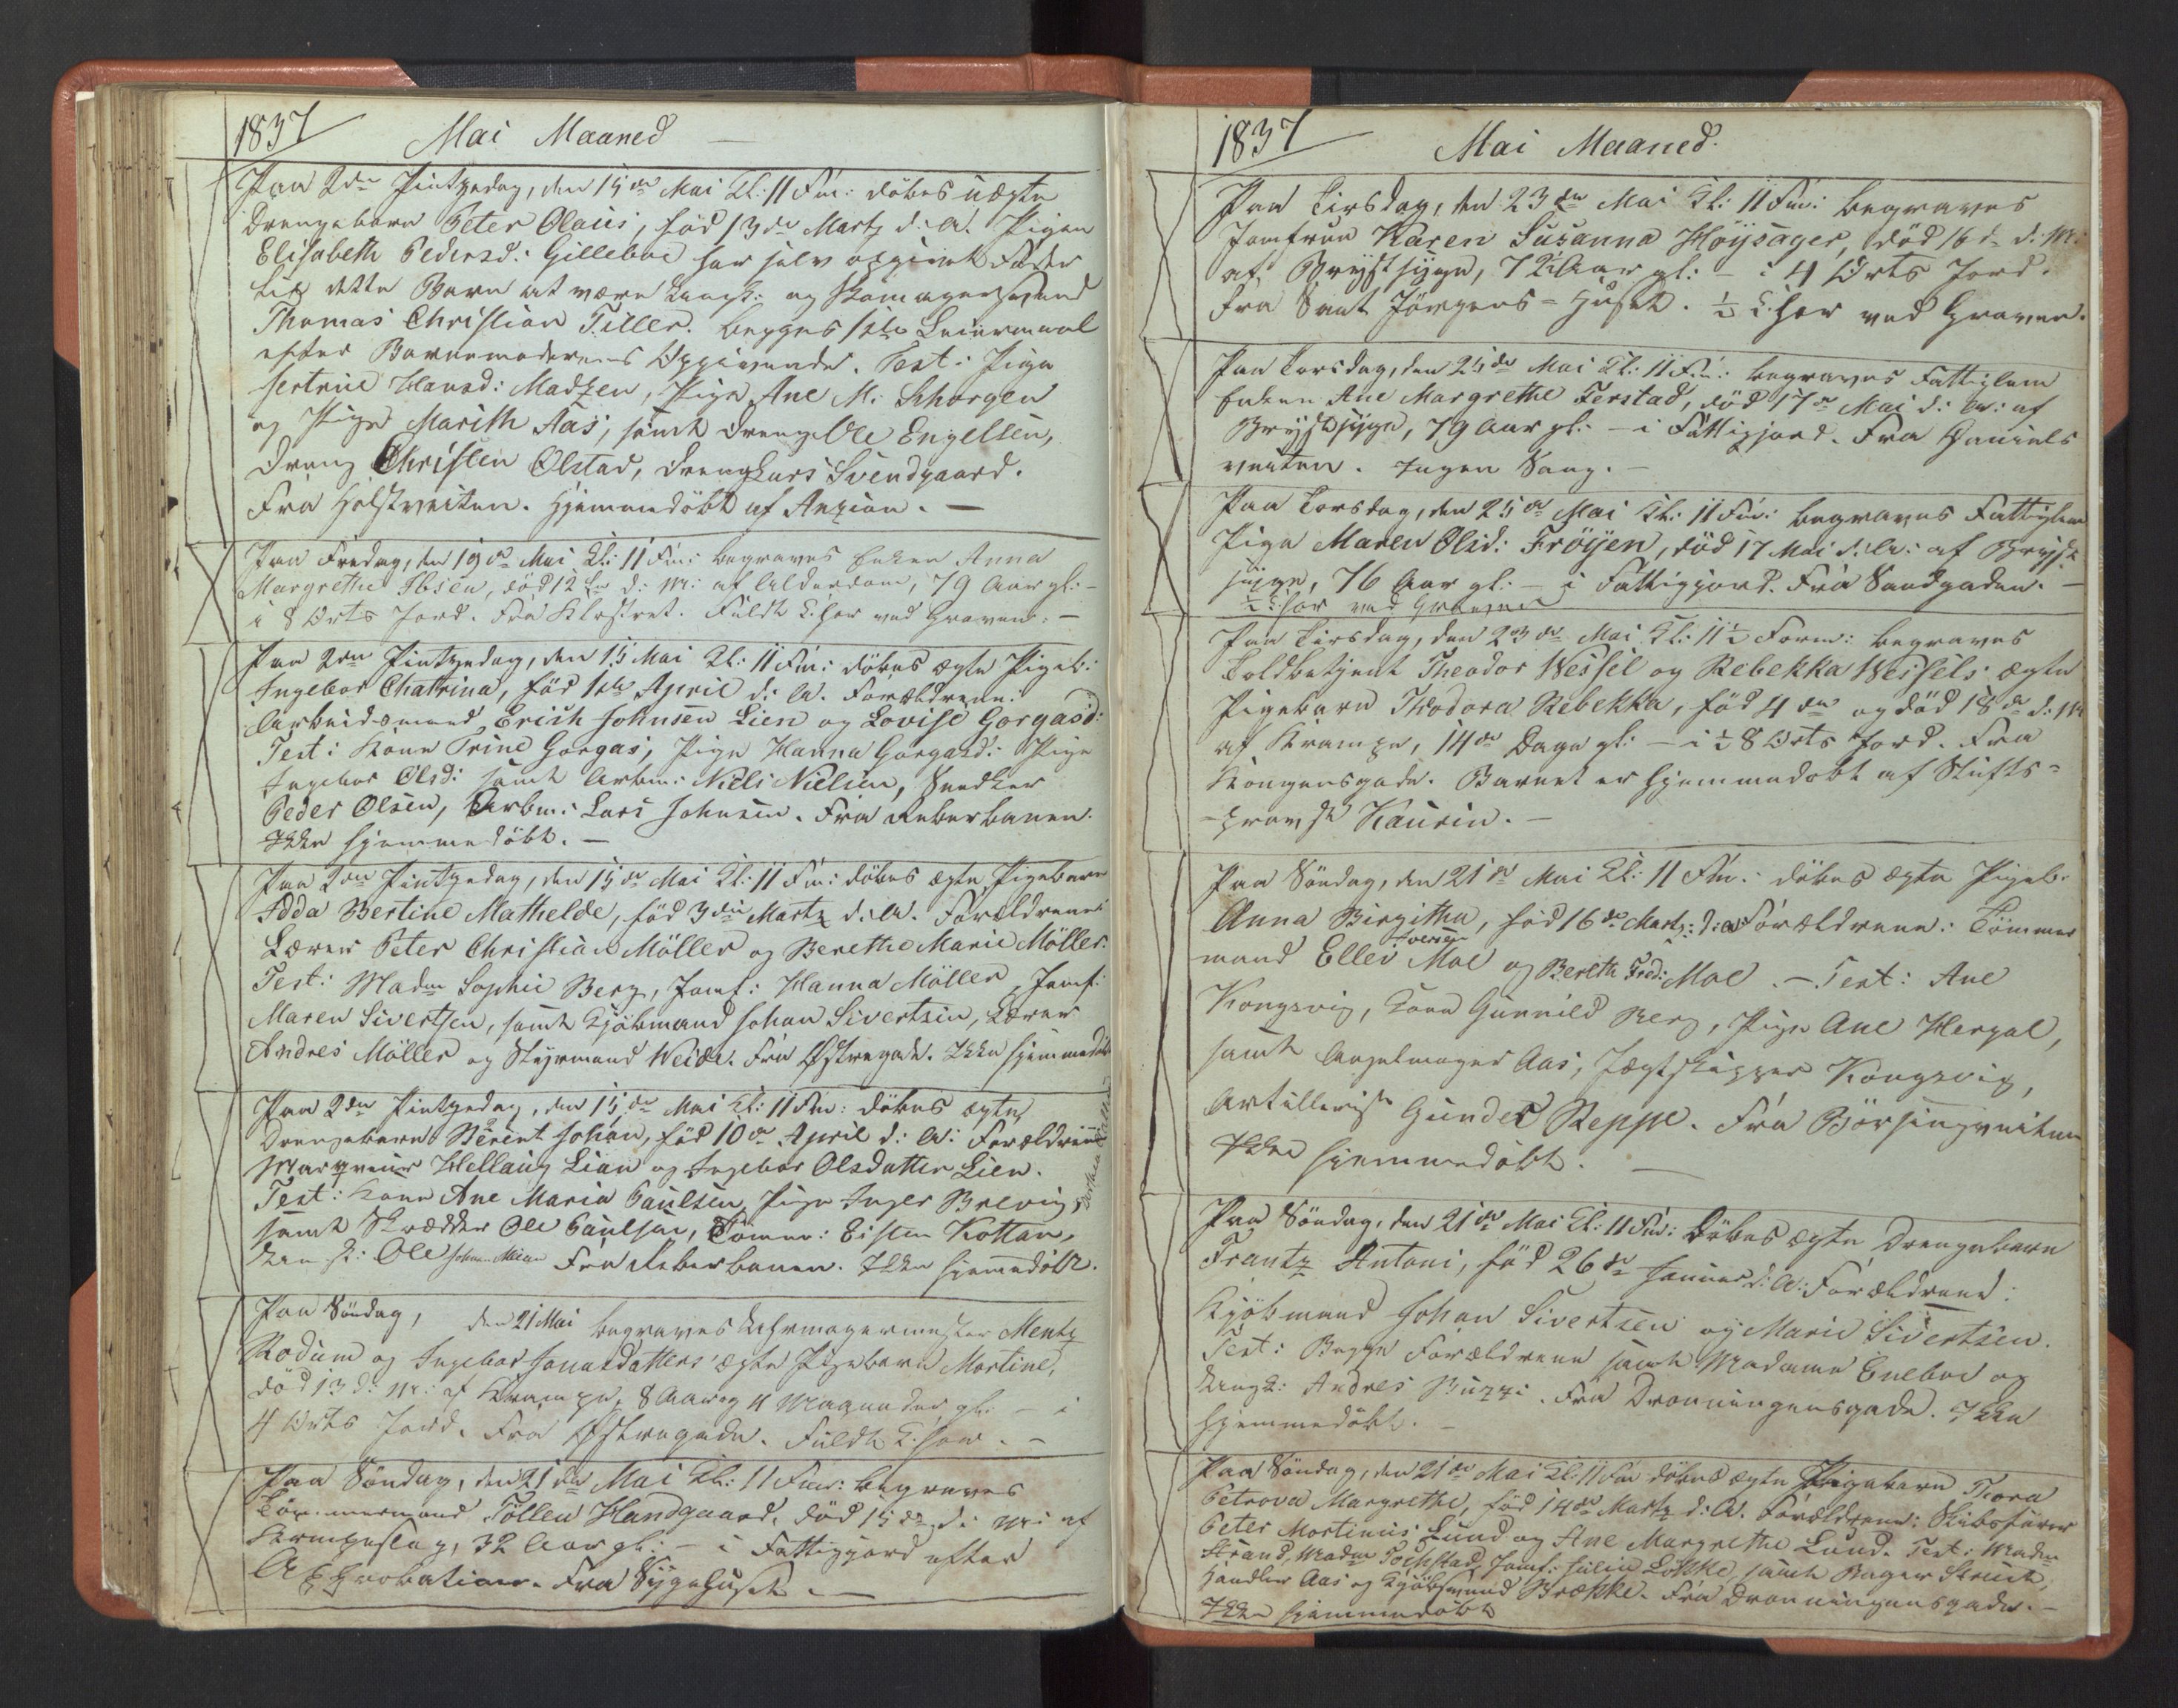 1837
Mai Maaned
Paa 2den Pintzedag, den 15de Mai Kl: 11 Fm: döbes uægte
Drengebarn Peter Olaus, född 13de Martz d: A. Pigen
Elisabeth Pedersd: Gilleboe har selv opgivet Fader
til dette Barn at være Langk: og Skomagersvend
Thomas Christian Tiller. begges 1ste Leiermaal
efter Barnemoderens Opgivende. Test: Pige
Hansd: Madtzen, Pige Ane M. Schorgen
og Pige Marith Aas, samt Dreng Ole Engelsen,
Dreng Christen Olstad, Dreng Lars Svendgaard.
Fra Holstveiten. Hjemmedöbt af Anzion.
Paa Fredag, den 19de Mai Kl: 11 Fm: begraves Enken Anna
Margrethe Ibsen, död 12te d: M: af Alderdom, 79 Aar gl: -
i 8 Orts Jord. Fra Klostret. Fuldt Chor ved Graven. -
Paa 2den Pintzedag, den 15 Mai Kl: 11 Fm: döbes ægte Pigeb:
Ingebor Chatrina, föd 1ste April d: A. Forældrene:
Arbeidsmand Erich Johnsen Lien og Lovise Gorgasd:
Test: Kone Trine Gorgas, Pige Hanna Gorgasd: Pige
Ingebor Olsd: samt Arbm: Niels Nielsen, Snedker
Peder Olsen, Arbm: Lars Johnsen. Fra Reberbanen.
Ikke hjemmedöbt. -
Paa 2den Pintzedag, den 15de Mai Kl: 11 Fm: döbes ægte Pigebarn
Adda Bertine Mathelde, föd 3die Martz d: A. Forældrene
Lærer Peter Christian Möller og Berethe Marie Möller.
Test: Madm Sophie Berg, Jomf: Hanna Möller, Jomf:
Maren Sivertsen, samt Kjöbmand Johan Sivertsen, Lærer
Andres Möller og Styrmand Weide. Fra Østregade. Ikke hjemmedöbt
Paa 2den Pintzedag, den 15de Mai Kl: 11 Fm: döbes ægte
Drengebarn Berent Johan, föd 10de April d: A: Forældrene
Hellaug Lian og Ingebor Olsdatter Lien.
Test: Kone Ane Maria Paulsen, Pige Inger Brevig,
samt Skrædder Ole Paulsen, Tömmer: Eisten Kottan,
Ole Johan Fra Reberbanen. Ikke hjemmedöbt.
Paa Söndag, den 21 Mai begraves Uhrmagermester Mentz
Rodum og Ingebor Jonasdatters ægte Pigebarn Martine,
död 13 d: M: af Krampe, 8 Aar og 11 Maaneder gl: - i
4 Orts Jord. Fra Østregade. Fuldt Chor. -
Paa Söndag, den 21de Mai Kl: 11 Fm: begraves
Tömmermand Töllev Handgaard, död 15de d: M: af
Krampeslag, 32 Aar gl: - i Fattigjord efter
Approbation. Fra Sygehuset. -
1837
Mai Maaned.
Paa Tirsdag, den 23de Mai Kl: 11 Fm: begraves
Jomfrue Karen Susanna Höysager, död 16de d: M:
af Brystsyge, 72 Aar gl: - i 4 Orts Jord.
Fra Sant Jörgens-Huset. ½ Chor ved Graven.
Paa Torsdag, den 25de Mai Kl: 11 Fm: begraves Fattiglem
Enken Ane Margrethe Ferstad, död 17de Mai d: A: af
Brystsyge, 79 Aar gl: - i Fattigjord. Fra Daniels
veiten. Ingen Sang. -
Paa Torsdag, den 25de Mai Kl: 11 Fm: begraves Fattiglem
Pige Maren Olsd: Fröyen, död 17 Mai d: A: af Bryst
syge, 76 Aar gl: - i Fattigjord. Fra Sandgaden. -
½ Chor ved Graven
Paa Tirsdag, den 23de Mai Kl: 11½ Form: begraves
Toldbetjent Theodor Wessel og Rebekka Wessels ægte
Pigebarn Thodora Rebekka, föd 4de og död 18de d: M
af Krampe, 14de Dage gl: - i ½ 8 Orts Jord. Fra
Kongensgade. Barnet er hjemmedöbt af Stifts=
=provst Kaurin. -
Paa Söndag, den 21de Mai Kl: 11 Fm: döbes ægte Pigeb:
Anna Birgitha, föd 16de Martz: d: A Forældrene: Tömmer
Iversen
mand Ellev Moe og Bereth Fred: Moe. - Test: Ane
Kongsvig, Kone Gunnild Berg, Pige Ane Hergal,
samt Aas, Jægtskipper Kongsvig,
Artillerist Gunder Reppe. Fra Börsingveiten
Ikke hjemmedöbt. -
Paa Söndag, den 21de Mai Kl: 11 Fm: döbes ægte Drengebarn
Frantz Antoni, föd 26de Januar d: A: Forældrene:
Kjöbmand Johan Sivertsen og Marie Sivertsen.
Test: Begge Forældrene samt Madame Eneboe og
Langk: Andres Buzzi. Fra Dronningensgade. Ikke
hjemmedöbt. -
Paa Söndag, den 21de Mai Kl: 11 Fm döbes ægte Pigebarn Thora
Petrova Margrethe, föd 14de Martz d: A. Forældrene: Skibsförer
Peter Mortinus Lund og Ane Margrethe Lund. Test: Madm
Strand, Madm Jomf: Julie Lökke, samt Bager Strand,
Handler Aas og Kjöbmand Brække. Fra Dronningensgade. -
Ikke hjemmedöbt